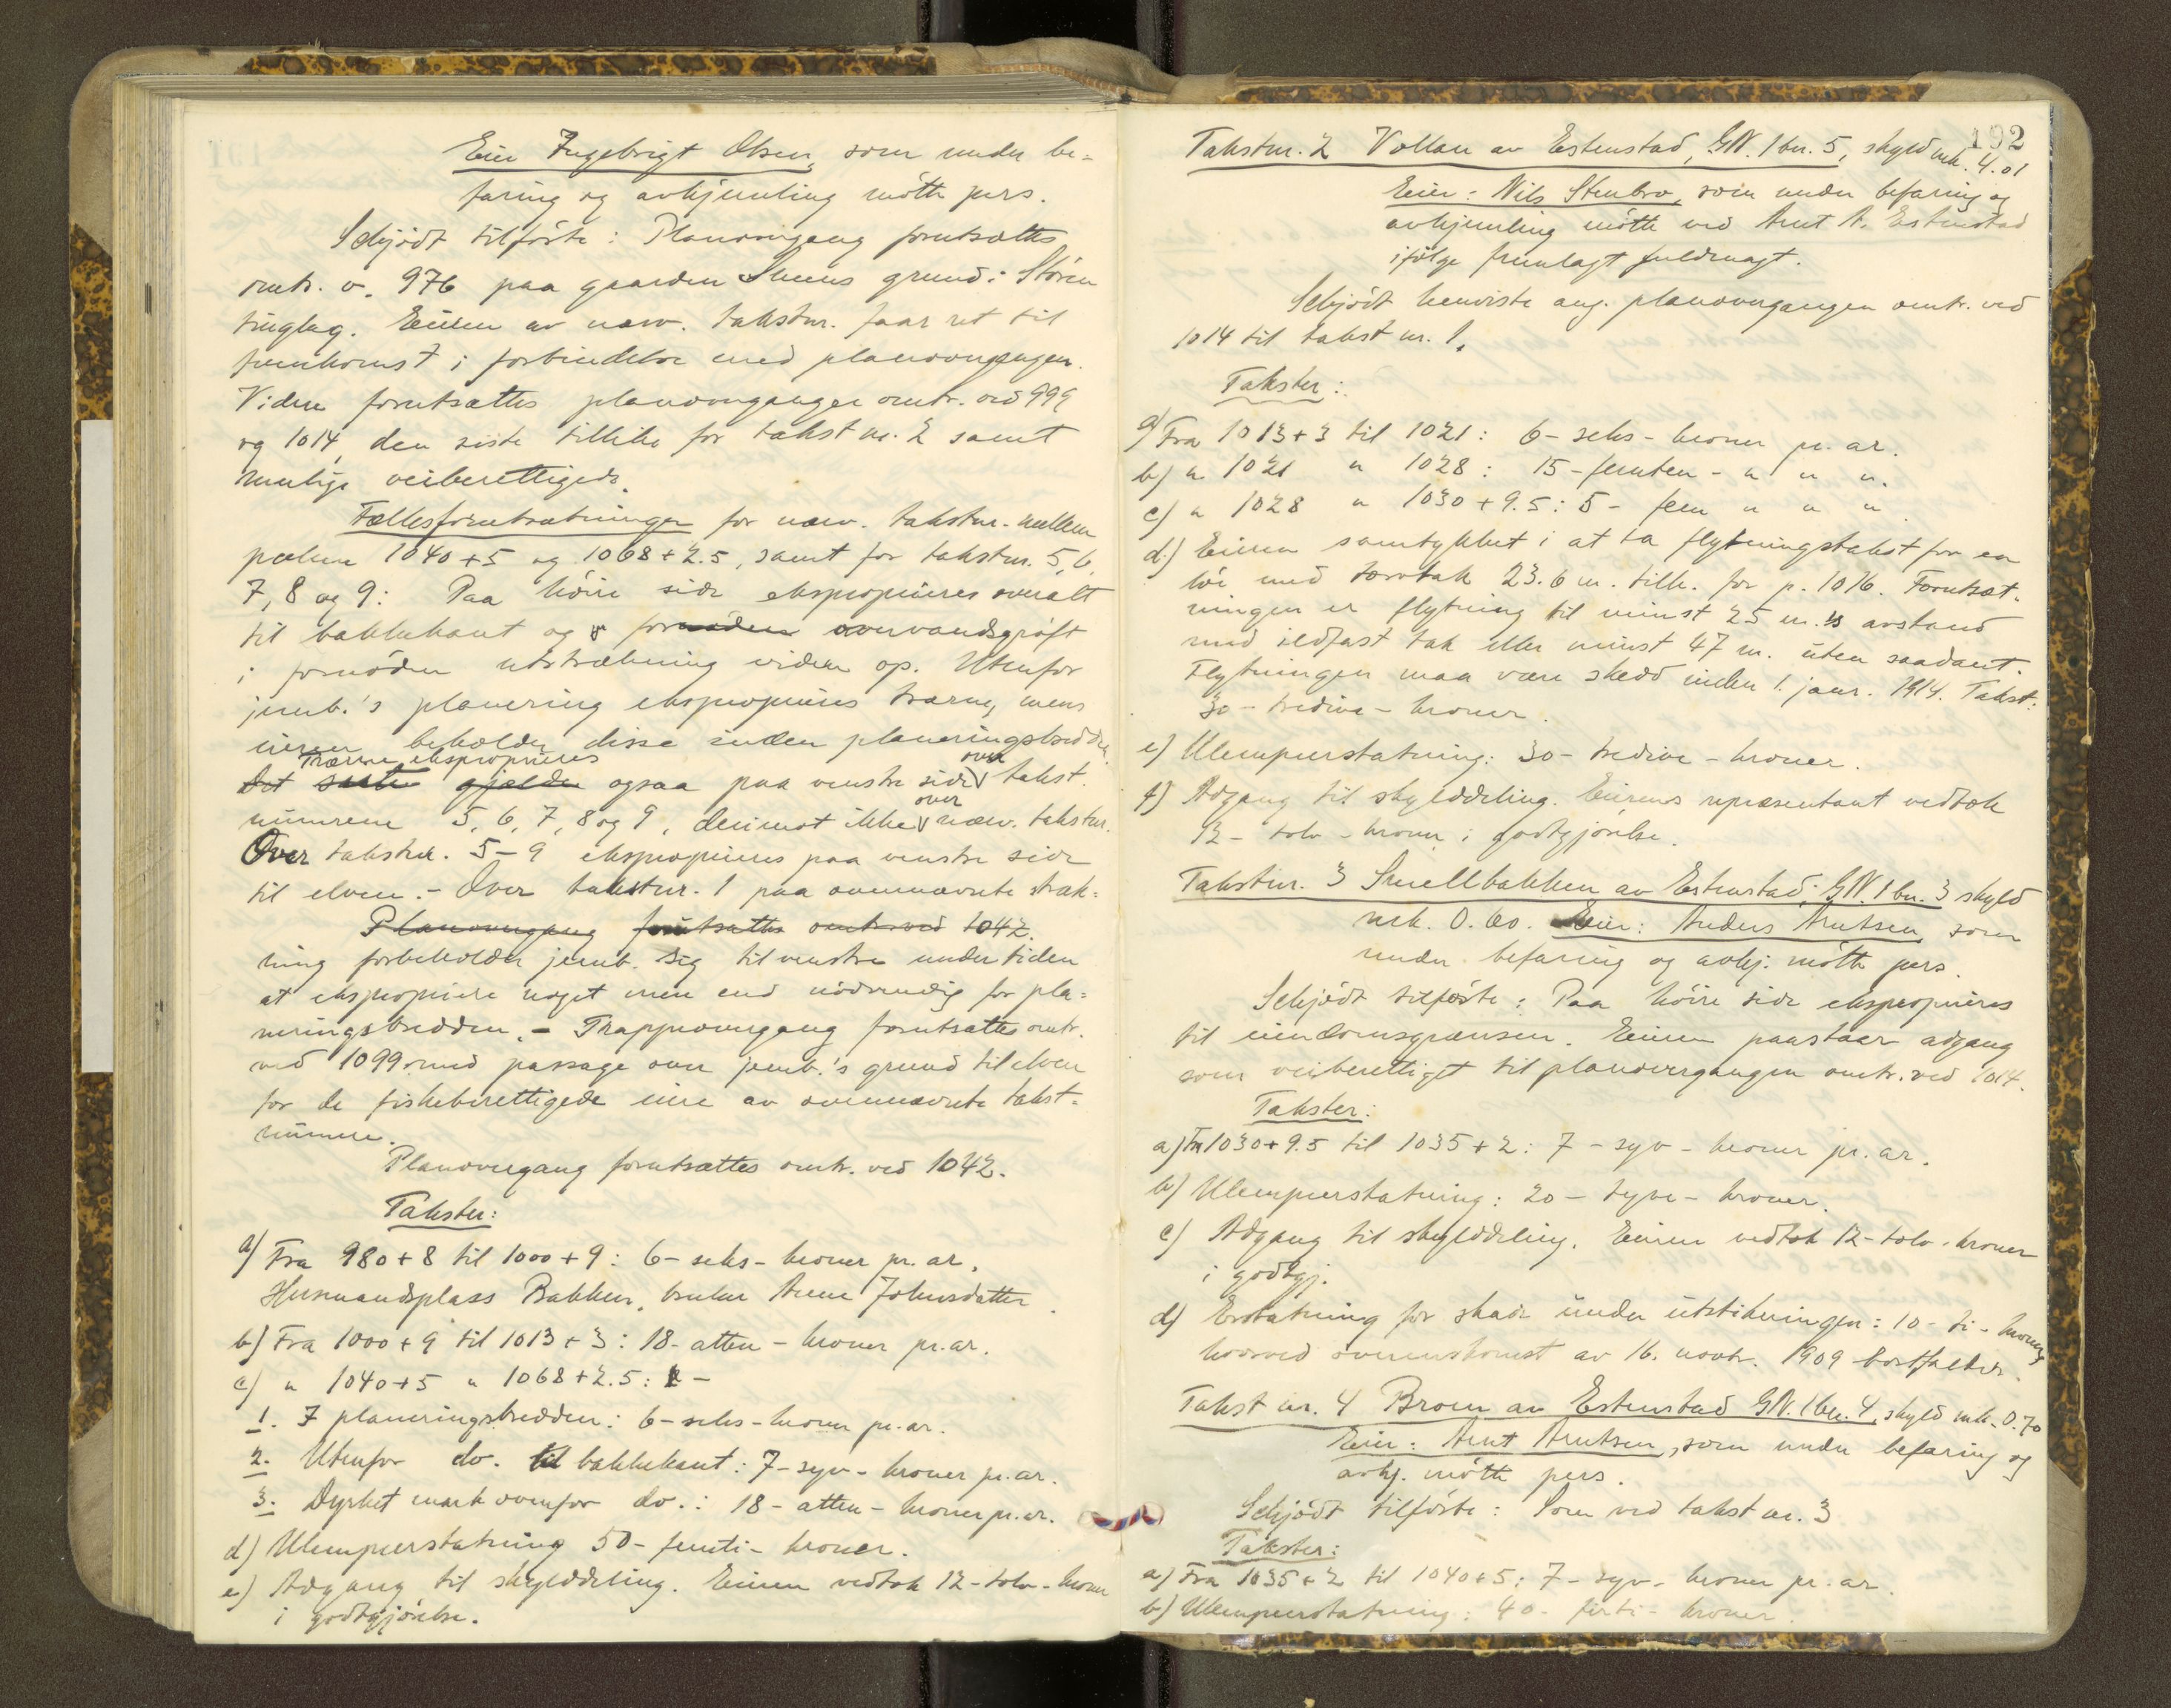 Eier Ingebrigt Olsen, som under be-
faring og avhjemling mötte pers.
Schjödt tilförte: Planovergang forutsættes
omtr. v. 976 paa gaarden Snuens grund i Stören
tinglag. Eieren av nærv. takstnr. faar ret til
fremkomst i forbindelse med planovergangen.
Videre forutsættes planoverganger omtr. ved 999
og 1014, den siste tillike for takst nr. 2 samt
mulige veiberettigede.
Fællesforutsætninger for nærv. takstnr. mellem
pælene 1040+5 og 1068+2.5, samt for takstnr. 5, 6,
7, 8 og 9: Paa höire side eksproprieres overalt
til bakkekant og for overvandsgröft
i fornöden utstrækning videre op. Utenfor
jernb.'s planering eksproprieres trærne, mens
eieren beholder disse inden planeringsbredden.
Trærne eksproprieres
Det siste gjælder ogsaa paa venstre side over takst-
numrene 5, 6, 7, 8 og 9, derimot ikke over nærv. takstnr.
Over takstnr. 5-9 eksproprieres paa venstre side
til elven. - Over takstnr. 1 paa ovennævnte stræk-
Planovergang forutsættes omtr. ved 1042.
ning forbeholder jernb. sig til venstre undertiden
at ekspropriere noget mere end nödvendig for pla-
neringsbredden. - Trappeovergang forutsættes omtr.
ved 1099 med passage over jernb.'s grund til elven
for de fiskeberettigede eiere av ovennævnte takst-
numre.
Planovergang forutsættes omtr. ved 1042.
Takster:
a) Fra 980+8 til 1000+9: 6-seks-kroner pr. ar.
Husmandsplass Bakken, bruker Anne Johnsdatter.
b) Fra 1000+9 til 1013+3: 18-atten-kroner pr. ar.
c) " 1040+5 " 1068+2.5: -
1. I planeringsbredden: 6-seks-kroner pr. ar.
2. Utenfor do. til bakkekant: 7-syv-kroner pr. ar.
3. Dyrket mark ovenfor do.: 18-atten-kroner pr. ar.
d) Ulempeerstatning 50-femti-kroner.
e) Adgang til skylddeling. Eieren vedtok 12-tolv-kroner
i godtgjörelse.
192
Takstnr. 2 Vollan av Estenstad, GN. 1 bn. 5, skyld mk. 4.01
Eier: Nils Stenbro, som under befaring og
avhjemling mötte ved Arnt A. Estenstad
ifölge fremlagt fuldmagt.
Schjödt henviste ang. planovergangen omtr. ved
1014 til takst nr. 1.
Takster:
a) Fra 1013+3 til 1021: 6-seks-kroner pr. ar.
b) " 1021 " 1028: 15-femten- " " ".
c) " 1028 " 1030+9.5: 5-fem " " ".
d) Eieren samtykket i at ta flytningstakst for en
löe med torvtak 23.6 m. tilh. for p. 1016. Forutsæt-
ningen er flytning til minst 25 m.s avstand
med ildfast tak eller minst 47 m. uten saadant.
Flytningen maa være skedd inden 1. janr. 1914. Takst:
30-tredive-kroner.
e) Ulempeerstatning: 30-tredive-kroner.
f) Adgang til skylddeling. Eierens repræsentant vedtok
12-tolv-kroner i godtgjörelse.
Takstnr. 3 Smellbakken av Estenstad, GN. 1 bn. 3 skyld
mrk. 0.60. Eier: Anders Arntsen, som
under befaring og avhj. mötte pers.
Schjödt tilförte: Paa höire side eksproprieres
til eiendomsgrænsen. Eieren paastaar adgang
som veiberettiget til planovergangen omtr. ved 1014.
Takster:
a) Fra 1030+9.5 til 1035+2: 7-syv-kroner pr. ar.
b) Ulempeerstatning: 20-tyve-kroner.
c) Adgang til skylddeling. Eieren vedtok 12-tolv-kroner
i godtgj.
d) Erstatning for skade under utstikningen: 10-ti-kroner,
hvorved overenskomst av 16. novbr. 1909 bortfalder.
Takst nr. 4 Broen av Estenstad GN. 1 bn. 4, skyld mk. 0.70
Eier: Arnt Arntsen, som under befaring og
avhj. mötte pers.
Schjödt tilförte: Som ved takst nr. 3
Takster:
a) Fra 1035+2 til 1040+5: 7-syv-kroner pr. ar.
b) Ulempeerstatning: 40-förti-kroner.